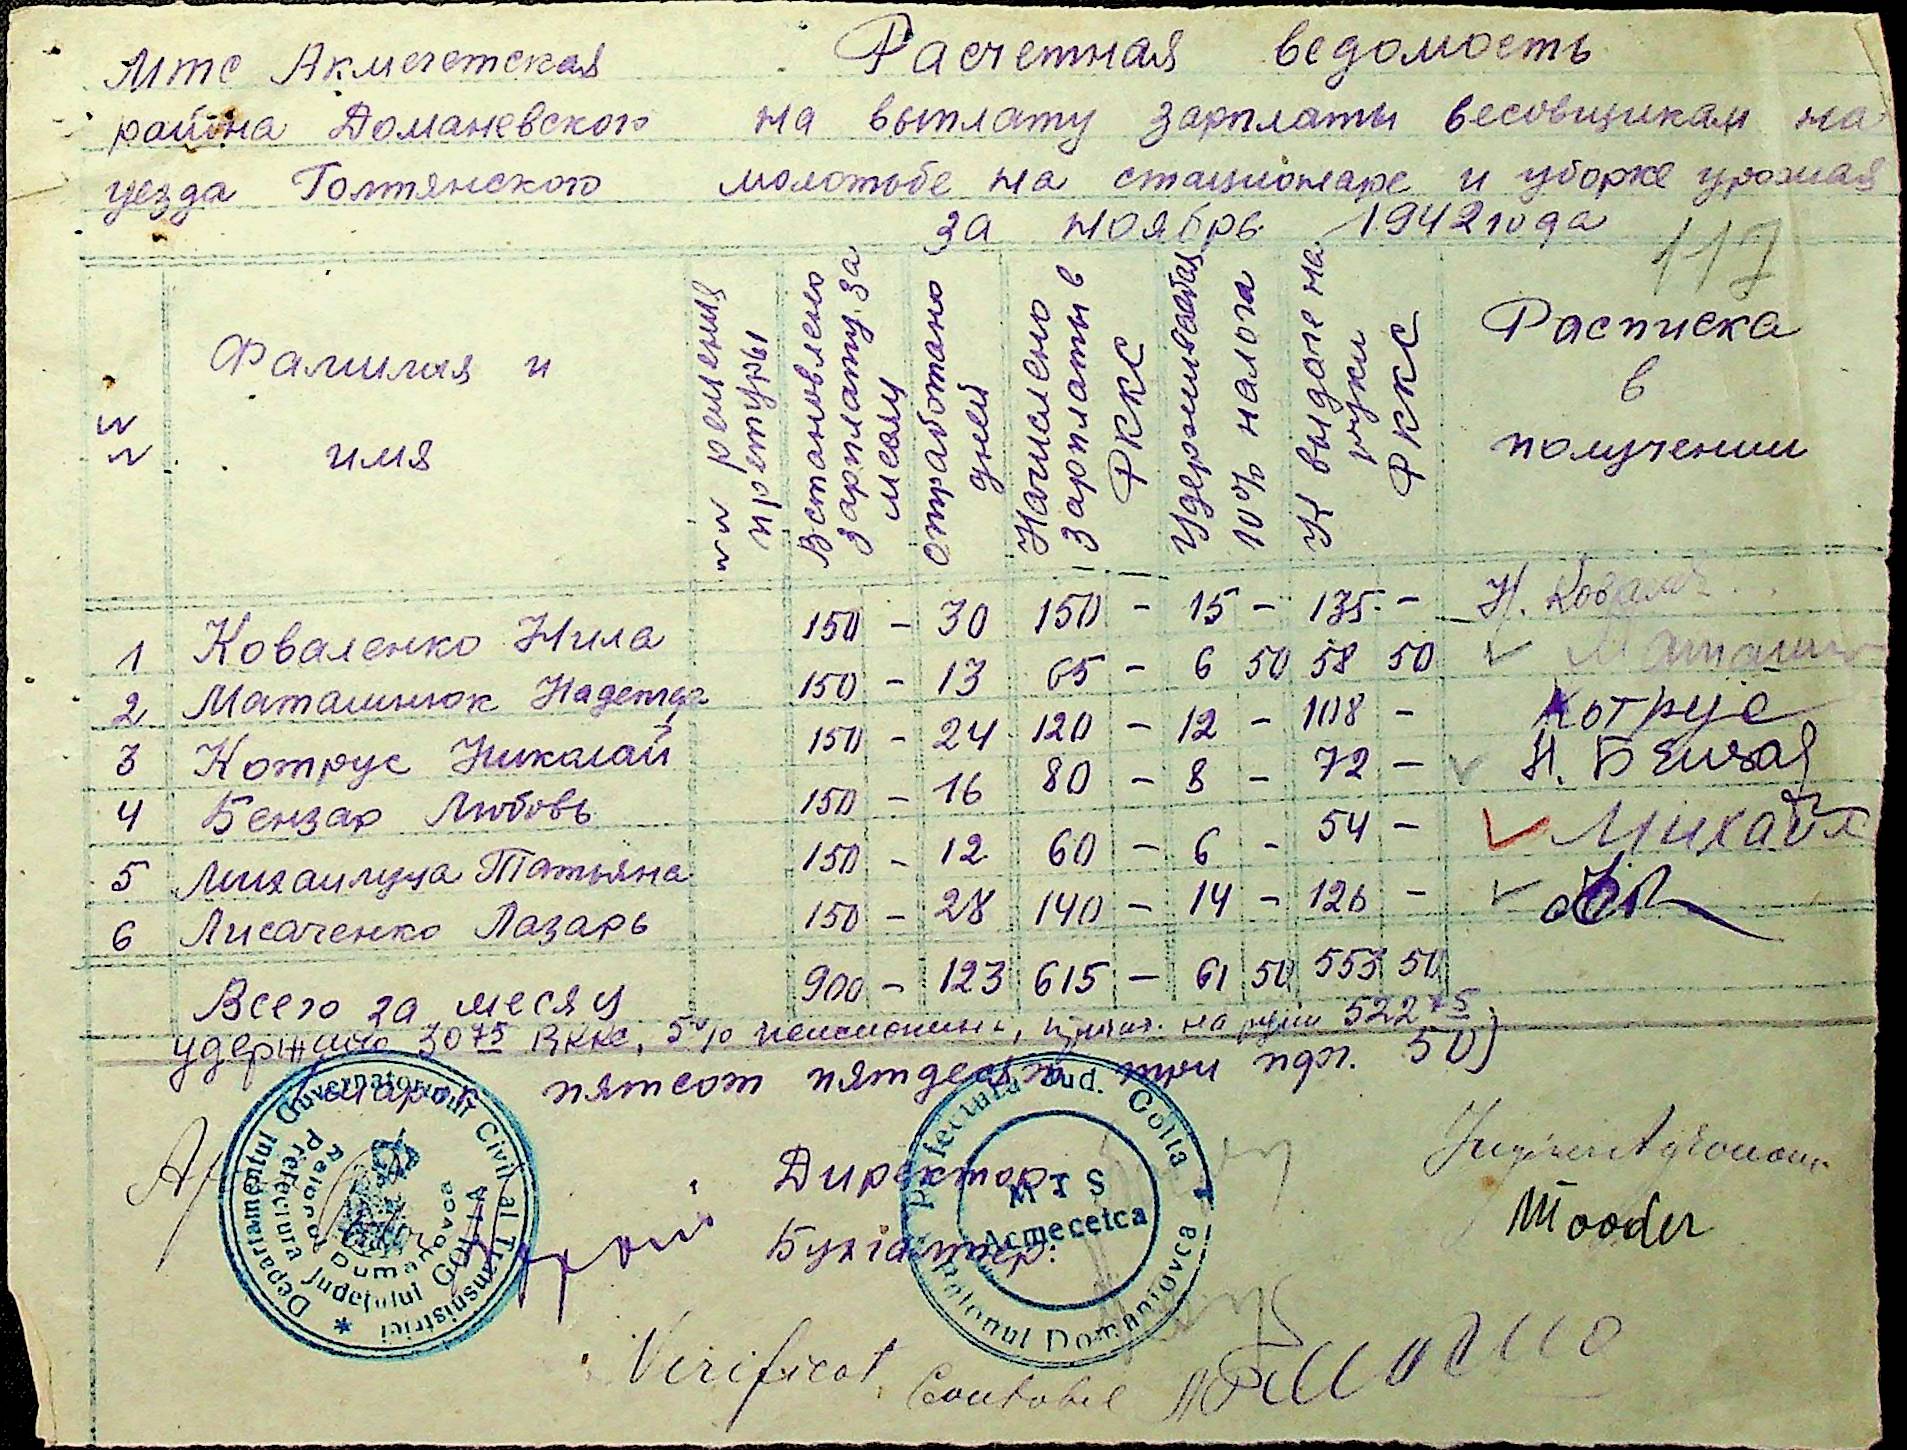 МТС Акмечетская
района Доманевского
уезда Голтянского
Расчетная ведомость
на выплату зарплаты весовщикам на
молотьбе на стационаре и уборке урожая
за ноябрь 1942 года
117
№№ Фамилия и имя №№ решения претуры Встановлено зарплату за месяц отработано дней Начислено зарплаты в РККС Удерживается 10% налога К выдаче на руки РККС Расписка в получении
1 Коваленко Нила 150 - 30 150 - 15 - 135 - Н. Ковал
2 Маташнюк Надежда 150 - 13 65 - 6 50 58 50
3 Котрус Николай 150 - 24 120 - 12 - 108 - Котрус
4 Бензар Любовь 150 - 16 80 - 8 - 72 - Н. Бензар
5 Михаилуца Татьяна 150 - 12 60 - 6 - 54 - Михай
6 Лисаченко Лазарь 150 - 28 140 - 14 - 126 -
Всего за месяц 900 - 123 615 - 61 50 553 50
удержано 30 75 РККС, 5% на руки 522 75
пятсот пятдесят три пфг. 50)
Директор:
Бухгалтер:
Departamentul Guvernatorului Civil al Transnistriei
Prefectura Județului GOLTA
Raionul Dumanovca
Prefectura Jud. Golta
MTS
Acmecetca
Raionul Domaniovca
Inginer Agronom
Verificat,
Contabil